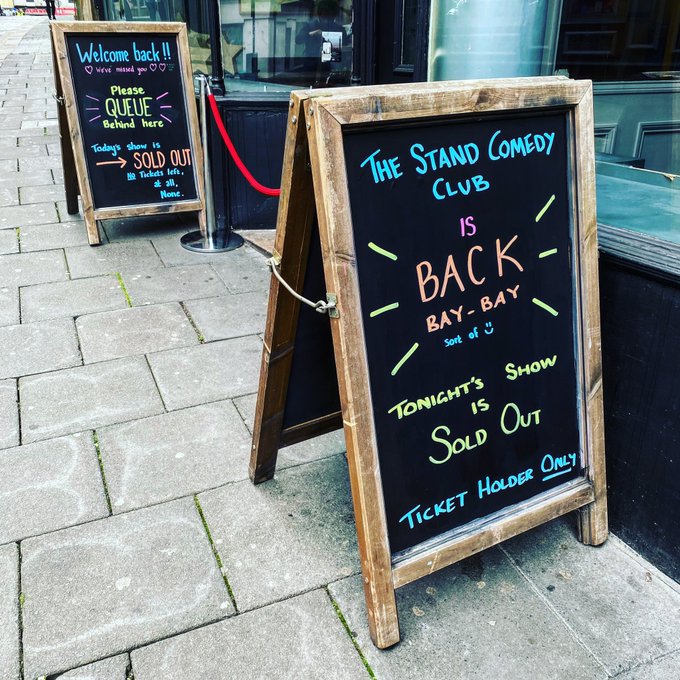 Welcome back!!
We've missed you
Please
QUEUE
Behind here
Today's show is
SOLD OUT
No Tickets left,
at all,
None.
THE STAND COMEDY
CLUB
IS
BACK
BAY-BAY
sort of
TONIGHT'S SHOW
IS
SOLD OUT
TICKET HOLDER ONLY